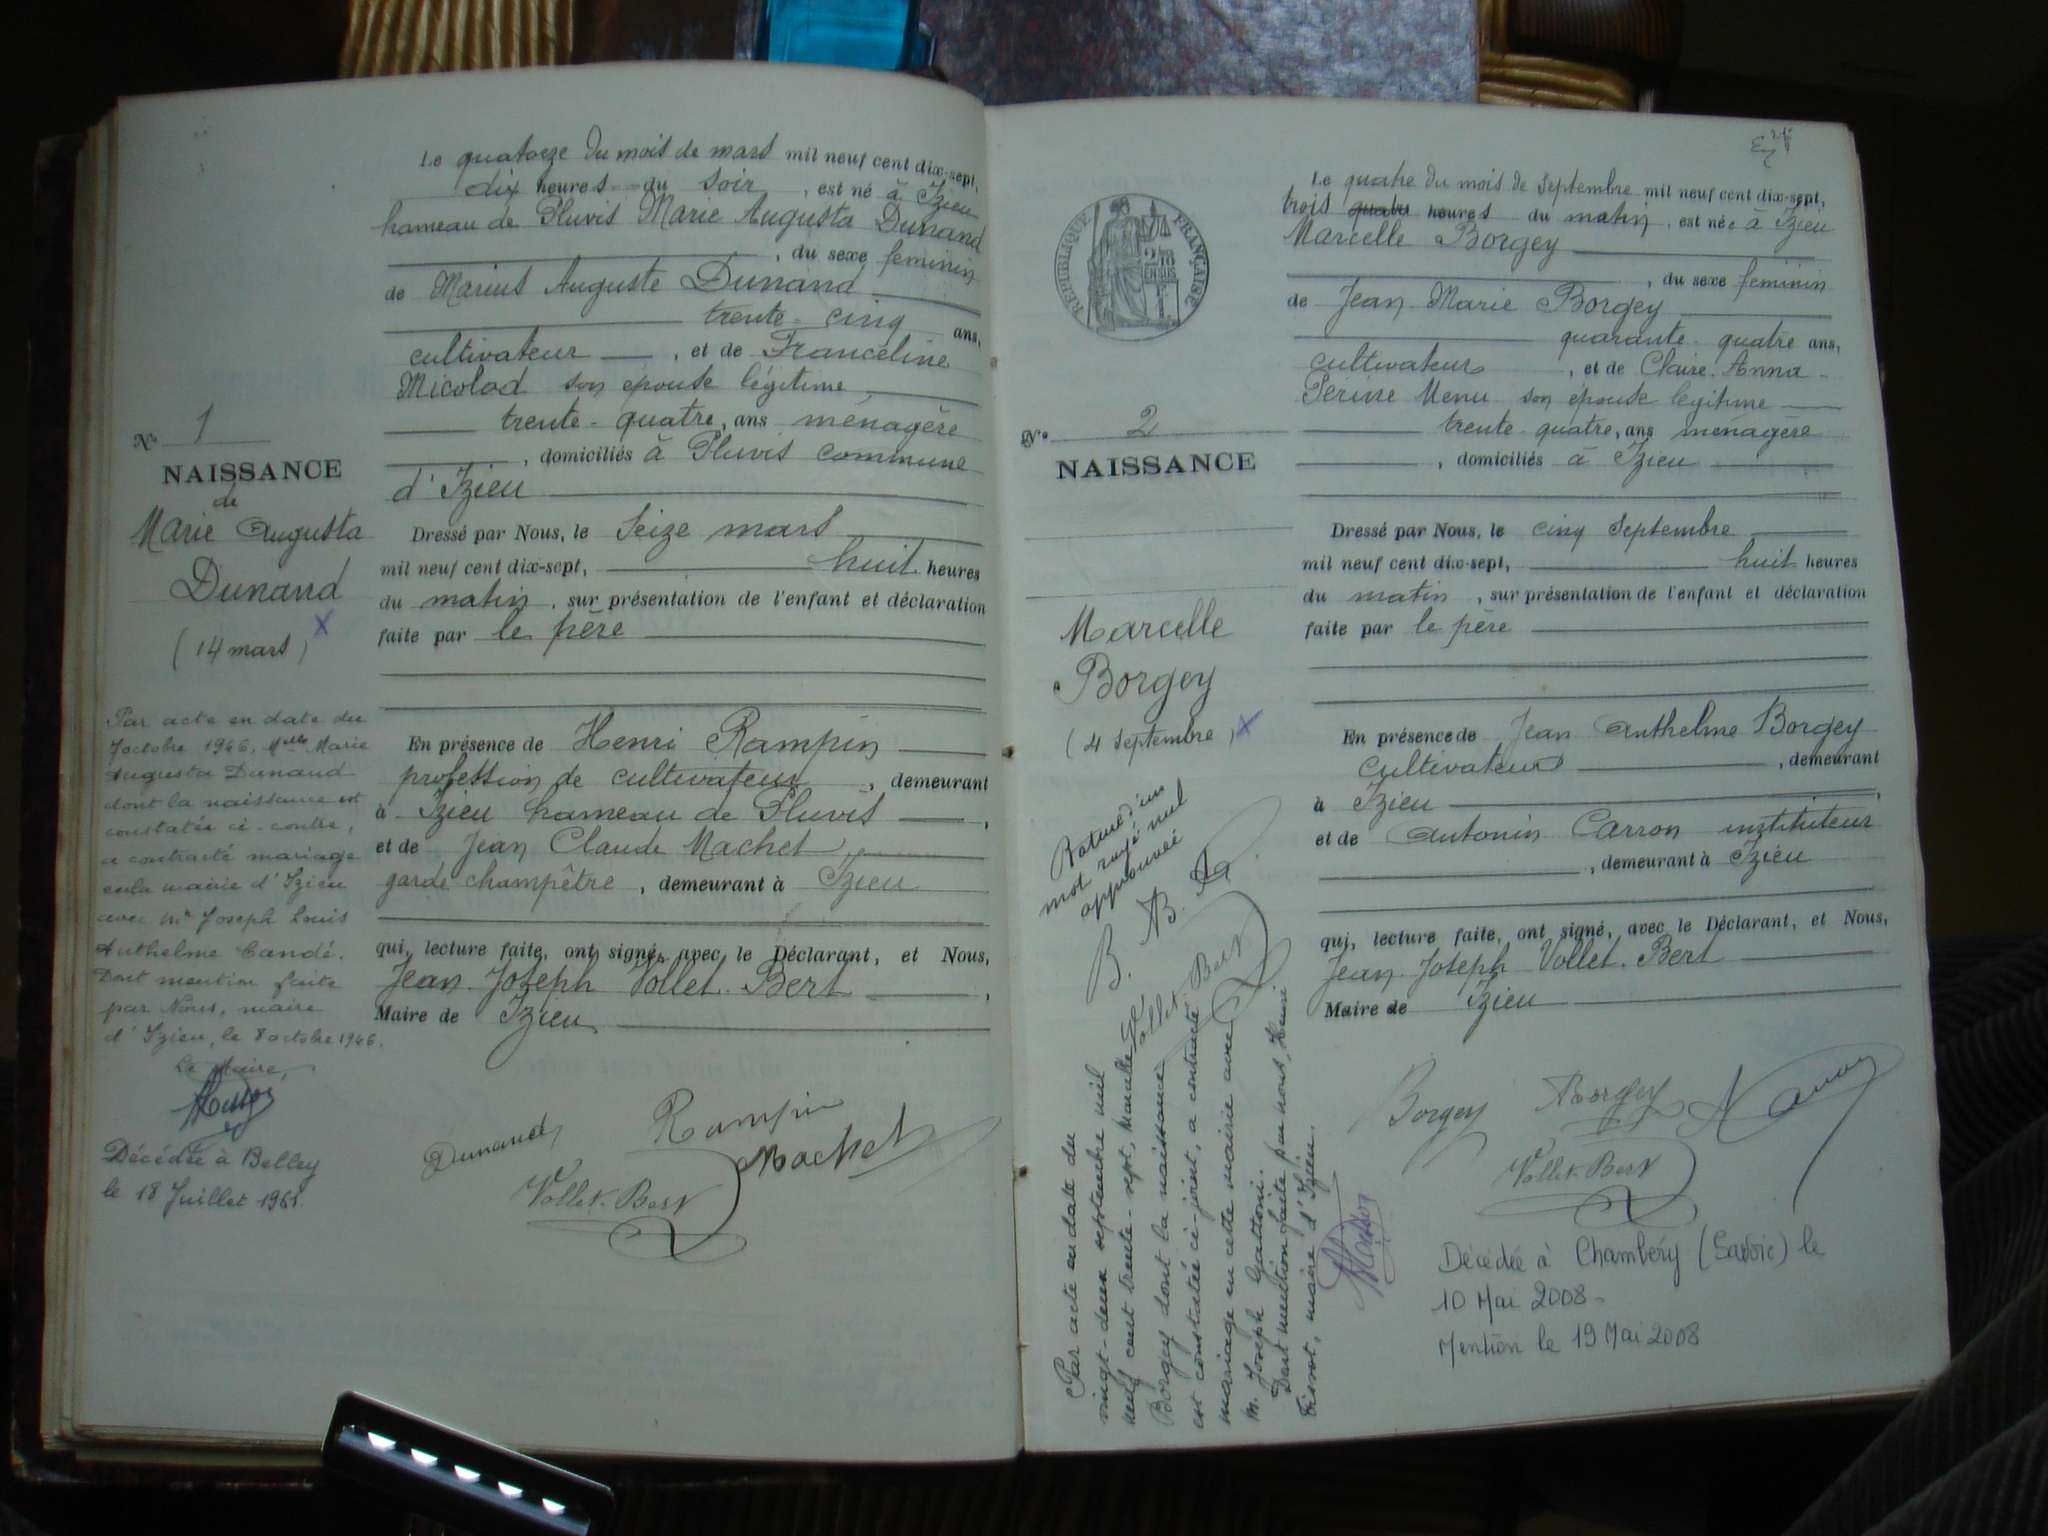 Le quatorze du mois de mars mil neuf cent dix-sept,
dix heures du soir, est né à Izieu
hameau de Pluvis Marie Augusta Dunand
, du sexe feminin
de Marius Auguste Dunand
trente-cinq ans,
cultivateur, et de Franceline
Micolod son épouse légitime
trente-quatre, ans ménagère
, domiciliés à Pluvis commune
d'Izieu
N° 1
NAISSANCE
de
Marie Augusta
Dunand
(14 mars) X
Dressé par Nous, le seize mars
mil neuf cent dix-sept, huit heures
du matin, sur présentation de l'enfant et déclaration
faite par le père
En présence de Henri Rampin
profession de cultivateur, demeurant
à Izieu hameau de Pluvis,
et de Jean Claude Machet
garde champêtre, demeurant à Izieu
qui, lecture faite, ont signé, avec le Déclarant, et Nous,
Jean-Joseph Vollet-Bert,
Maire de Izieu
Par acte en date du
7 octobre 1946, Melle Marie
Augusta Dunand
dont la naissance est
constatée ci-contre,
a contracté mariage
en la mairie d'Izieu
avec Mr Joseph Louis
Anthelme Candé.
Dont mention faite
par Nous, maire
d'Izieu, le 8 octobre 1946.
Le Maire,
Décédée à Belley
le 18 Juillet 1961.
Dunand
Rampin
Machet
Vollet-Bert
Le quatre du mois de septembre mil neuf cent dix-sept,
trois quatre heures du matin, est née à Izieu
Marcelle Borgey
, du sexe feminin
de Jean-Marie Borgey
quarante-quatre ans,
cultivateur, et de Claire-Anna-
Périne Menu son épouse légitime
trente-quatre, ans ménagère
, domiciliés à Izieu
REPUBLIQUE FRANÇAISE
N° 2
NAISSANCE
Marcelle
Borgey
(4 septembre) X
Dressé par Nous, le cinq septembre
mil neuf cent dix-sept, huit heures
du matin, sur présentation de l'enfant et déclaration
faite par le père
En présence de Jean Anthelme Borgey
cultivateur, demeurant
à Izieu,
et de Antonin Carron instituteur
, demeurant à Izieu
qui, lecture faite, ont signé, avec le Déclarant, et Nous,
Jean-Joseph Vollet-Bert
Maire de Izieu
Rature d'un
mot rayé nul
approuvée
B. B.
Vollet-Bert
Par acte en date du
vingt-deux septembre mil
neuf cent trente-sept, Marcelle
Borgey dont la naissance
est constatée ci-joint, a contracté
mariage en cette mairie avec
M. Joseph Gattoni.
Dont mention faite par nous, Henri
Tissot, maire d'Izieu.
Borgey
Borgey
Vollet-Bert
Décédée à Chambéry (Savoie) le
10 Mai 2008-
Mention le 19 Mai 2008